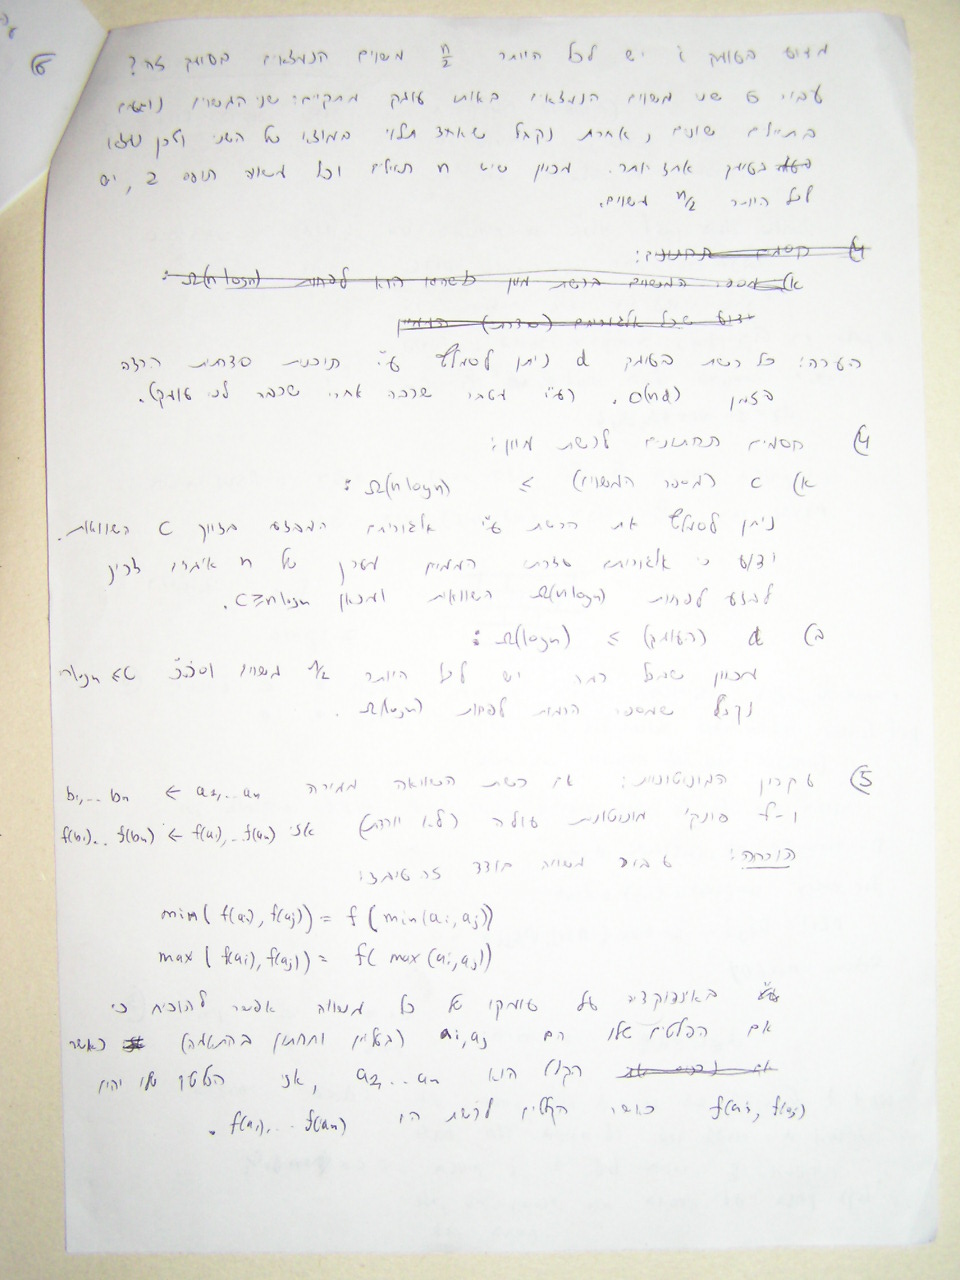 מדוע בעומק i יש לכל היותר n/2 משווים הנמצאים בעומק זה?
עבור 6 שני משווים הנמצאים באותו עומק מתקיים: שני המשווים נוגעים
בתילים שונים, אחרת נקבל שאחד תלוי במוצא של השני ולכן נמצא
בעומק אחד יותר. מכיוון שיש n תילים וכל משווה תופס 2, יש
לכל היותר n/2 משווים.
4) חסמים תחתונים:
א) מספר המשווים ברשת מיון כלשהי הוא לפחות Ω(nlogn):
ידוע שכל אלגוריתם (סדרתי) הממיין
הערה: כל רשת בעומק d ניתן לסמלץ ע"י תוכנית סדרתית הרצה
בזמן O(nd). (ע"י מעבר שכבה אחרי שכבה לפי עומק).
4) חסמים תחתונים לרשת מיון:
א) C (מספר המשווים) ≥ Ω(nlogn):
ניתן לסמלץ את הרשת ע"י אלגוריתם המבצע בדיוק C השוואות.
ידוע כי אלגוריתם סדרתי הממיין מערך של n איברים צריך
לבצע לפחות Ω(nlogn) השוואות ומכאן C≥nlogn.
ב) d (העומק) ≥ Ω(logn):
מכיוון שבכל רמה יש לכל היותר n/2 משווים C≥nlogn
נקבל שמספר הרמות לפחות Ω(logn).
5) עקרון המונוטוניות: אם רשת השוואה ממירה a1,...an → b1,...bn
ו-f פונק' מונוטונית עולה (לא יורדת) אזי f(a1),..f(an) → f(b1)..f(bn)
הוכחה: עבור משווה בודד זה טיבעי:
min(f(ai),f(aj)) = f(min(ai,aj))
max(f(ai),f(aj)) = f(max(ai,aj))
באינדוקציה על עומקו של כל משווה אפשר להוכיח כי
אם הפלטים שלו הם ai,aj (בעליון ותחתון בהתאמה) כאשר
הקלט הוא a1...an, אזי הפלטים שלו יהיו
f(ai),f(aj) כאשר הקלטים לרשת הם f(a1),...f(an).